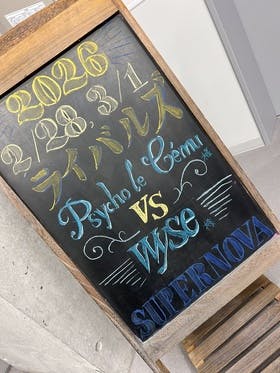 2026
2/28, 3/1
ライバルズ
Psycho le Cému
VS
wyse
SUPERNOVA